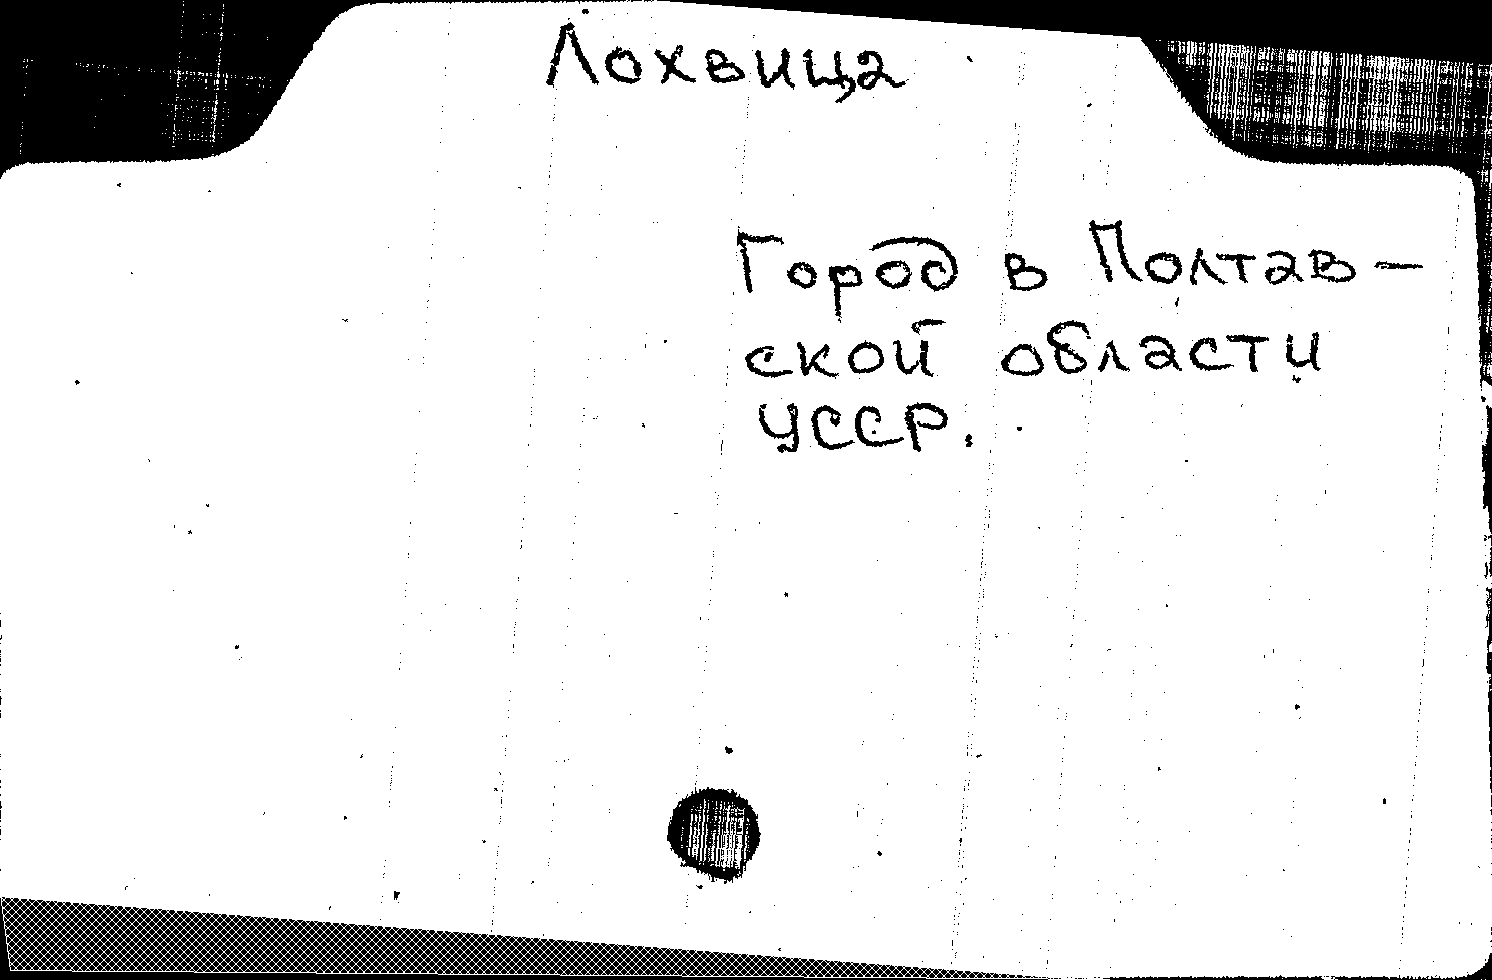 Лохвица
Город в Полтав-
ской области
УССР.